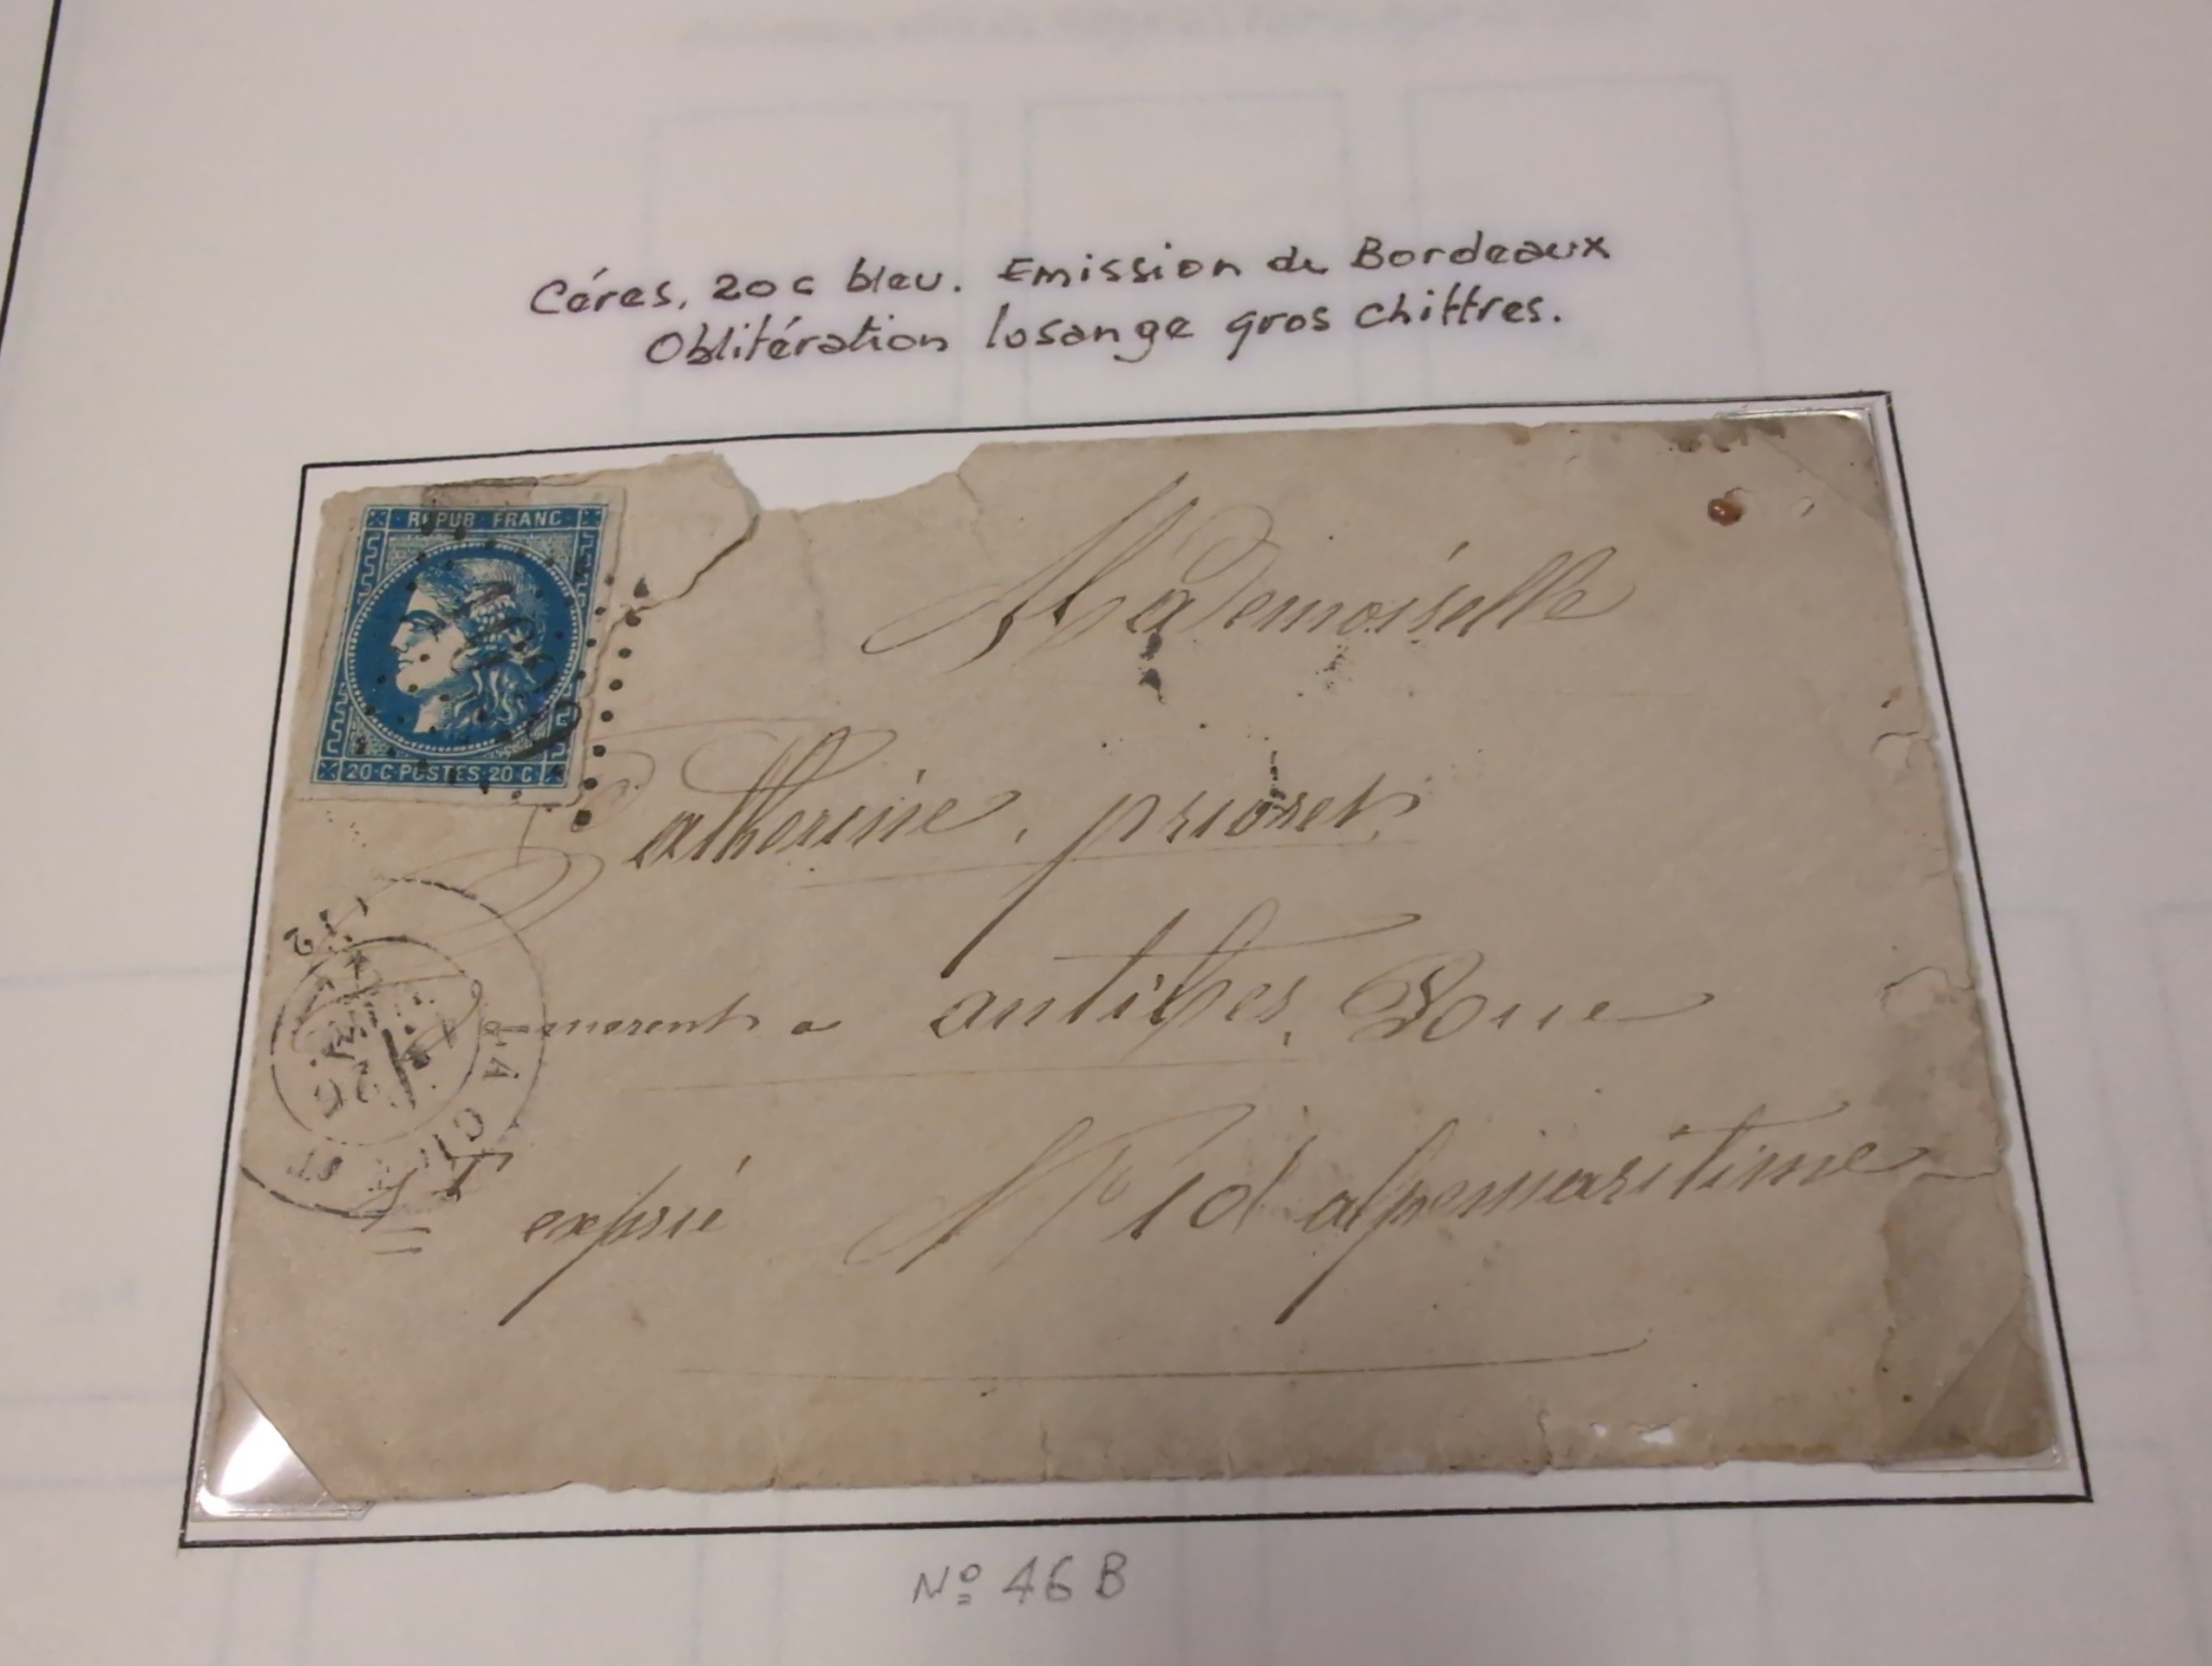 Céres, 20c bleu. Emission de Bordeaux
Oblitération losange gros chiffres.
REPUB FRANC
20·C POSTES·20 C
Mademoiselle
Catherine, prioret
a antibes, Roue
LA CIOTAT
exprié N° 10 alpemaritime
Nº 46 B